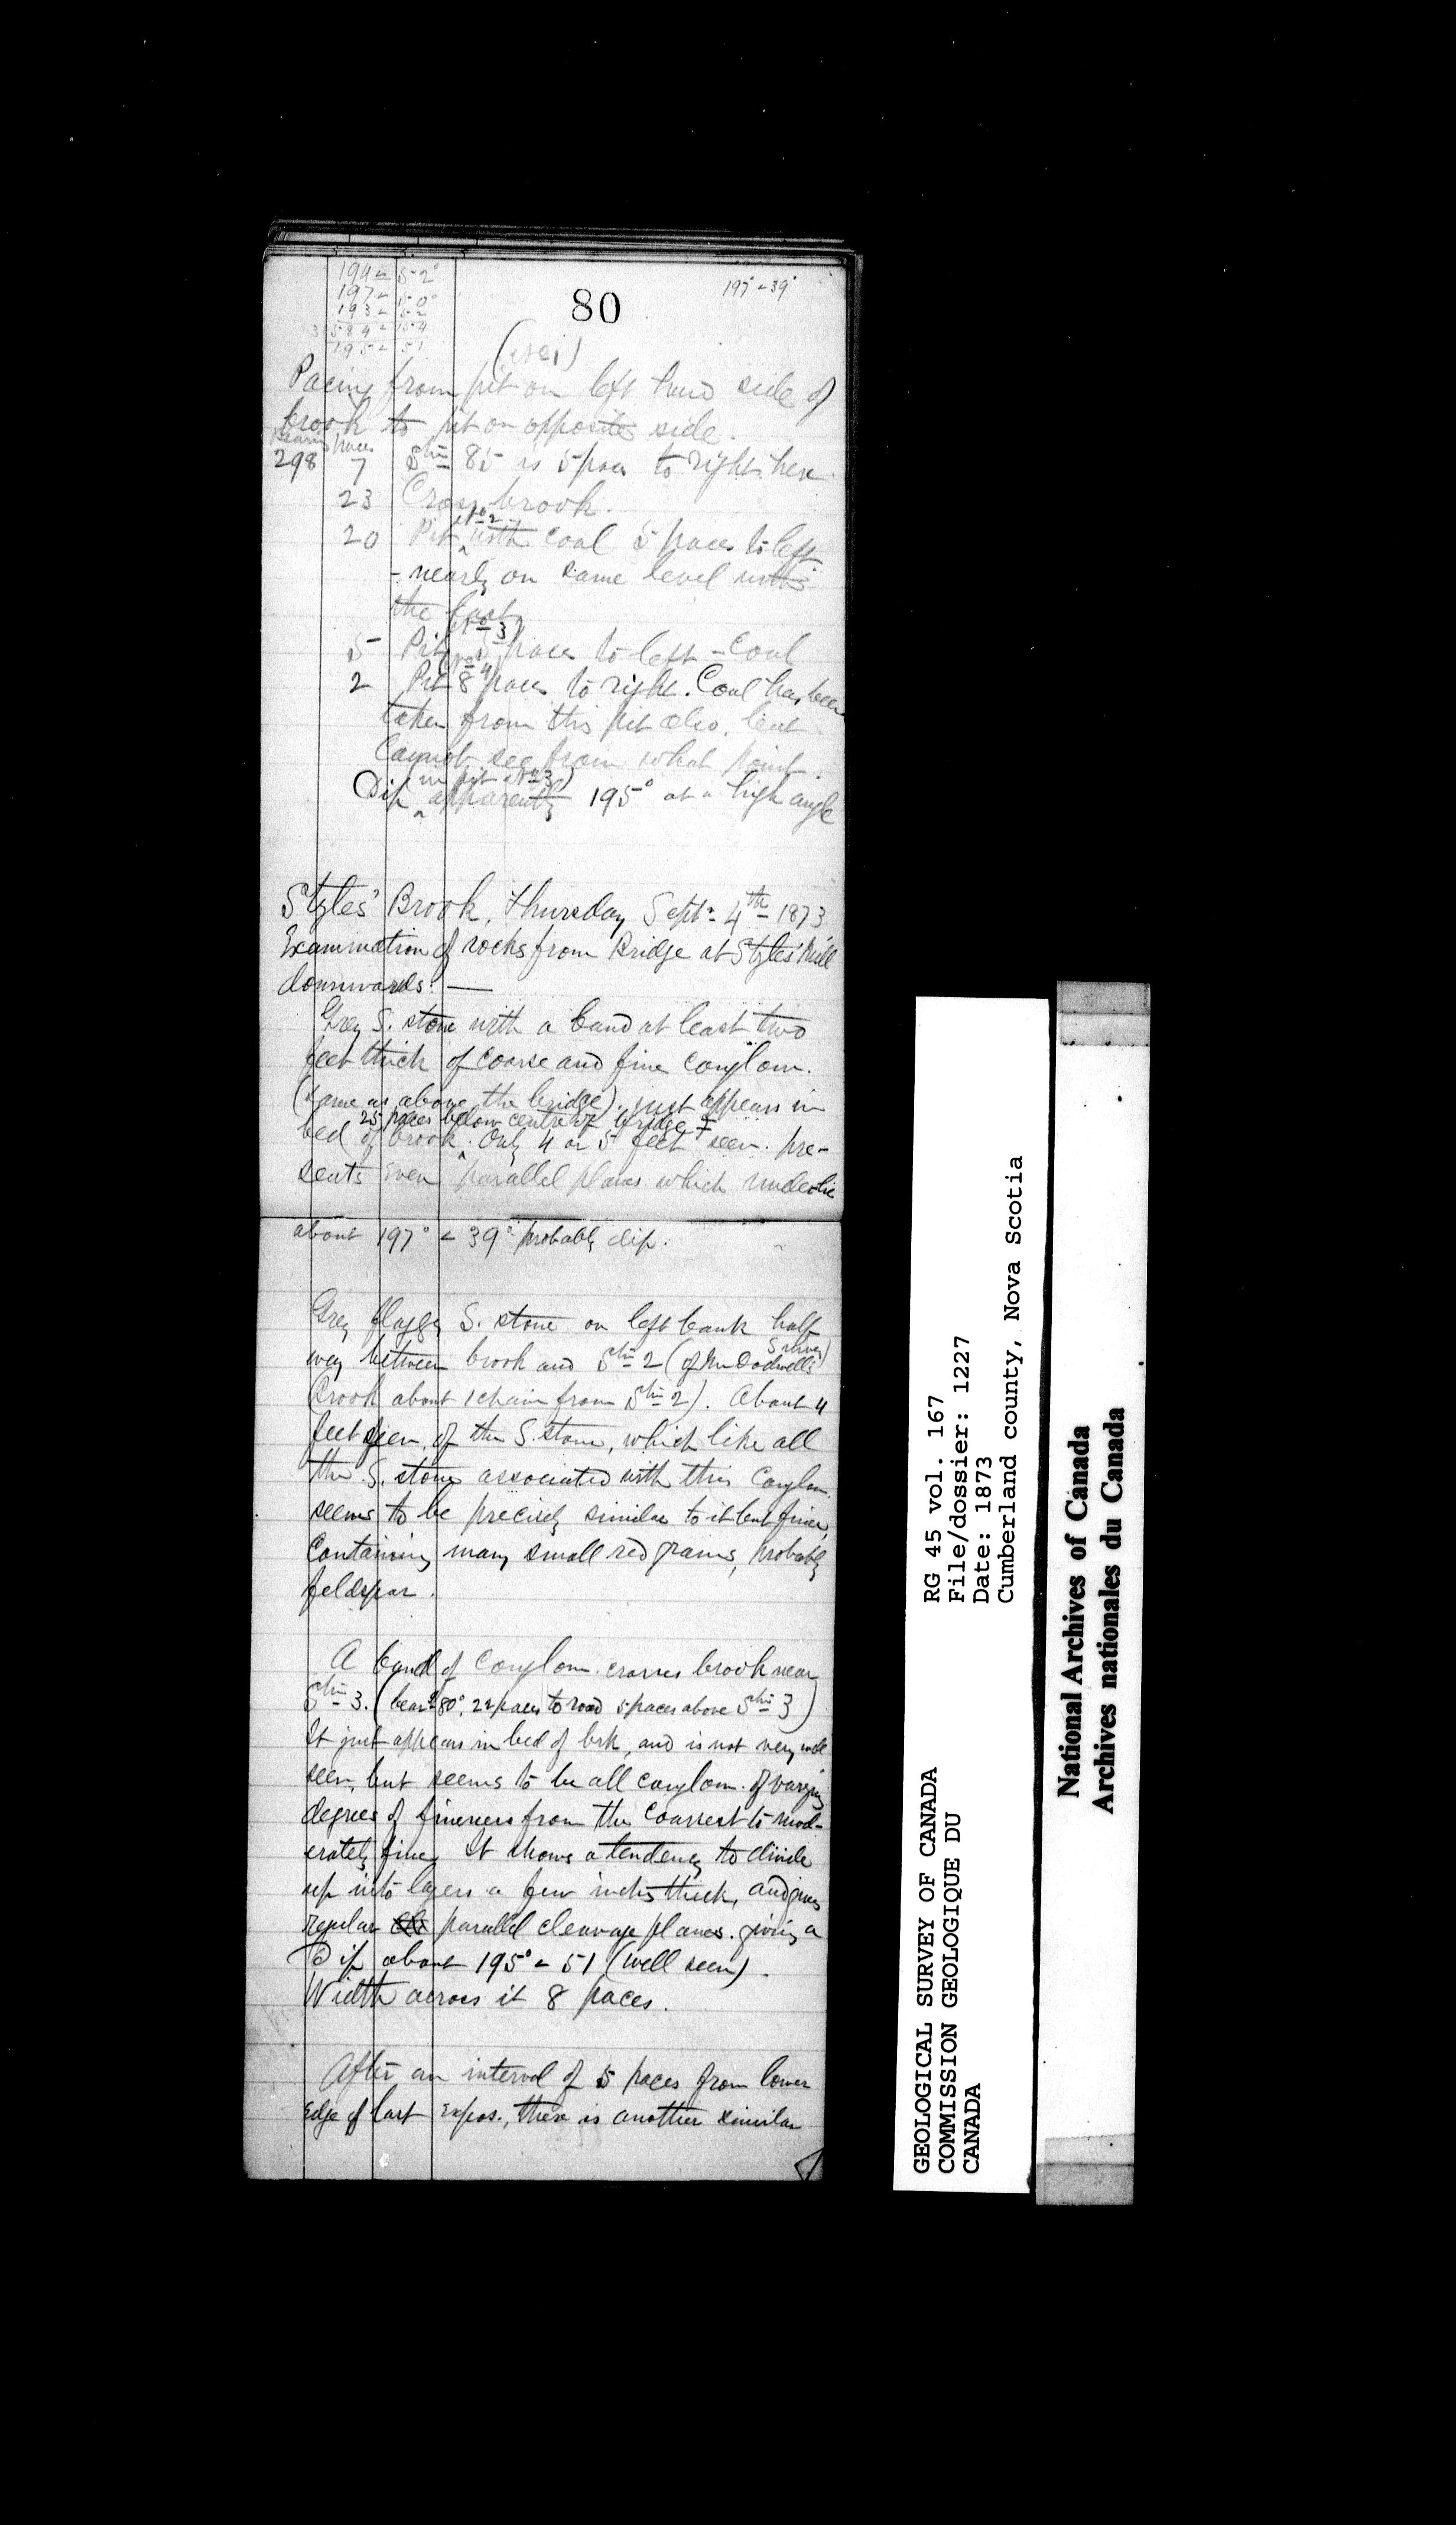 194° < 52°
197 < 50°
193 < 52
3 584 < 154
195 < 51
80
197° < 39°
(No 1)
Pacing from pit on left hand side of
brook to pit on opposite side.
Bearing paces
298 7 Stn 85 is 5 paces to right here
23 Cross brook.
No 2
20 Pit ‸ with coal 5 paces to left
- nearly on same level with
the last
(No 3)
5 Pit 5 paces to left - Coal
(No 4)
2 Pit 8 paces to right. Coal has been
taken from this pit also, but
Cannot see from what point.
in pit No 3)
Dip ‸ apparently 195° at a high angle
Styles' Brook, Thursday Sept. 4th 1873
Examination of rocks from Bridge at Styles' Mill
downwards: —
Grey S. stone with a band at least two
feet thick of coarse and fine conglom.
(same as above the bridge). just appears in
25 paces below centre of bridge
bed of brook ‸. Only 4 or 5 feet seen. pre-
sents even parallel planes which underlie
about 197° < 39° probably dip.
Grey flaggy S. stone on left bank half
way between brook and Stn 2 (of Mr Dodwell's Survey)
(brook about 1 chain from Stn 2). About 4
feet seen, of the S. stone, which like all
the S. stone associated with this Conglom.
seems to be precisely similar to it but finer,
Containing many small red grains, probably
feldspar.
A band of Conglom. crosses brook near
Stn 3. (bear 80°, 22 paces to road 5 paces above Stn 3)
It just appears in bed of brk, and is not very well
seen, but seems to be all conglom. of varying
degrees of fineness from the coarsest to mod-
erately fine. It shows a tendency to divide
up into layers a few inches thick, and gives
regular parallel cleavage planes. giving a
Dip about 195° < 51 (well seen).
Width across it 8 paces.
After an interval of 5 paces from lower
edge of last expos., there is another similar
GEOLOGICAL SURVEY OF CANADA
COMMISSION GEOLOGIQUE DU
CANADA
RG 45 vol. 167
File/dossier: 1227
Date: 1873
Cumberland county, Nova Scotia
National Archives of Canada
Archives nationales du Canada